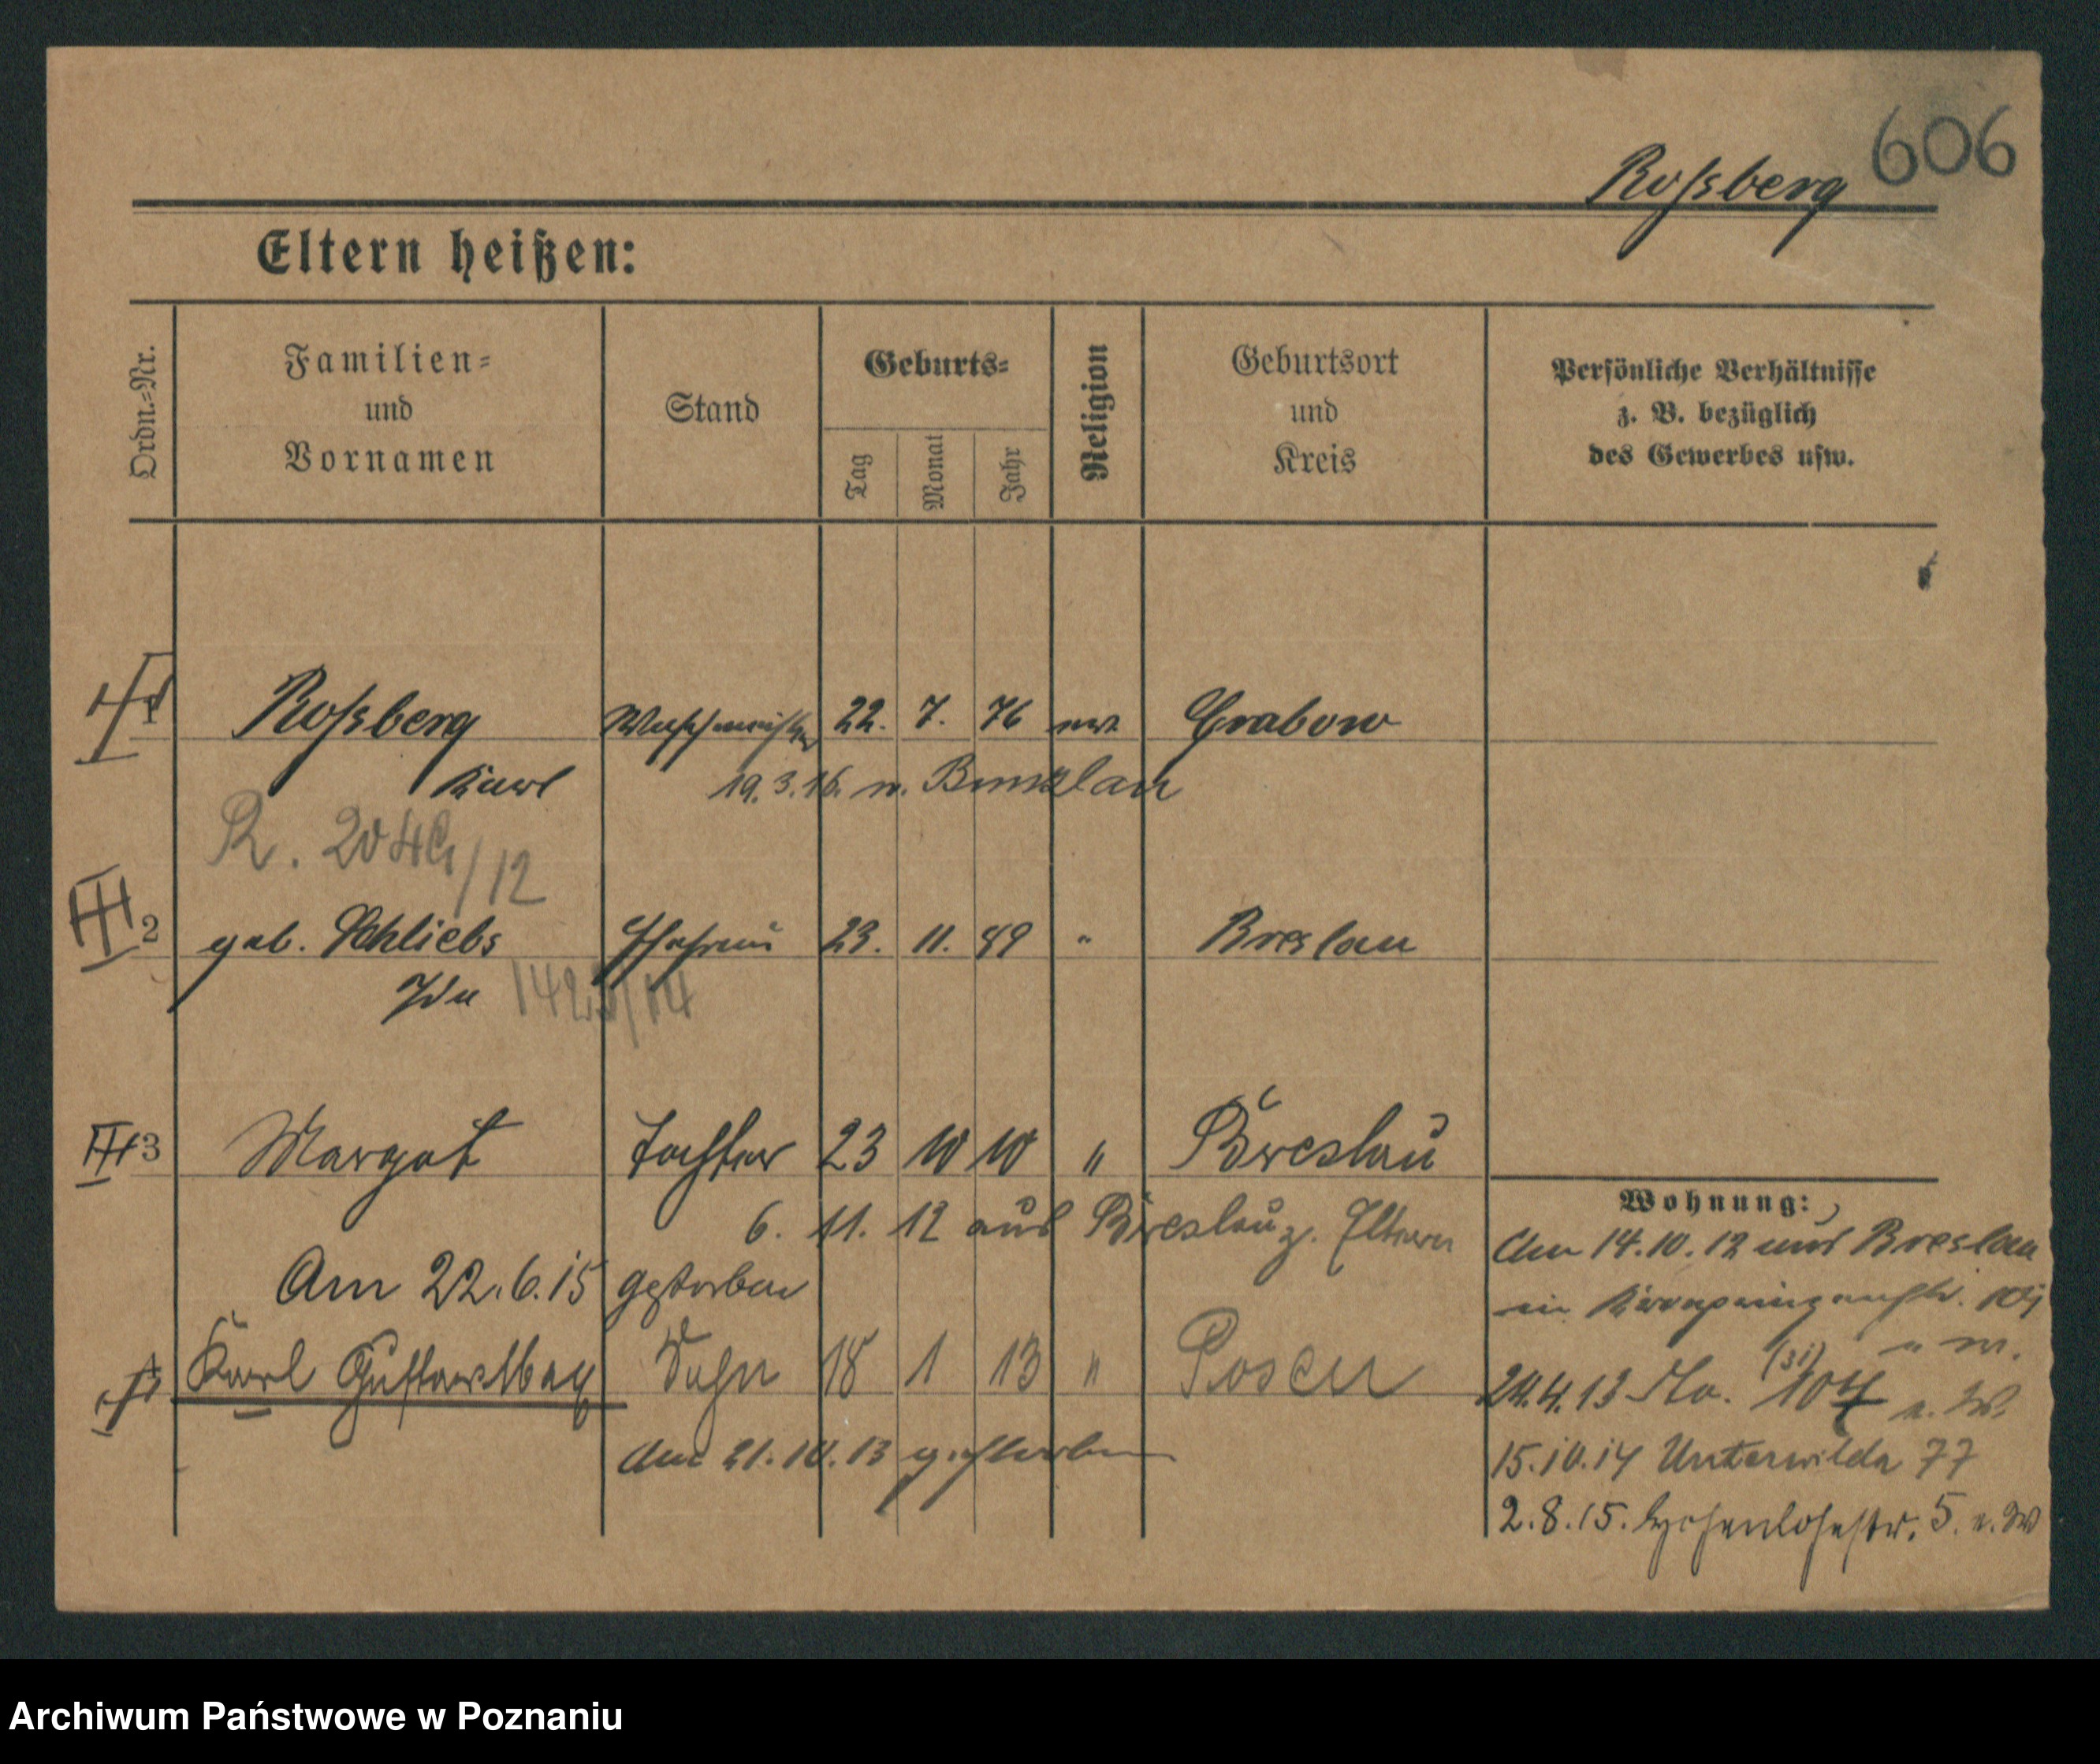 606
Roſsberg
Eltern heißen:
Ordn.-Nr.
Familien-
und
Vornamen
Stand
Geburts-
Tag
Monat
Jahr
Religion
Geburtsort
und
Kreis
Persönliche Verhältnisse
z. B. bezüglich
des Gewerbes usw.
1 Roſsberg 22. 7. 76 Grabow
Karl 19.3.16. n. Bunzlau
R. /12
2 geb. Schliebs Ehefrau 23. 11. 89 " Breslau
Ida /14
3 Margot Tochter 23 10 10 " Breslau
6. 11. 12 aus Breslau z. Eltern
Am 22.6.15 gestorben
Karl Sohn 18 1 13 " Posen
Am 21.10.13 gestorben
Wohnung:
Am 14.10.12 aus Breslau
in Kronprinzenstr.
24.4.13
15.10.14 Unterwilda 77
2.8.15. Hohenlohestr. 5.
Archiwum Państwowe w Poznaniu